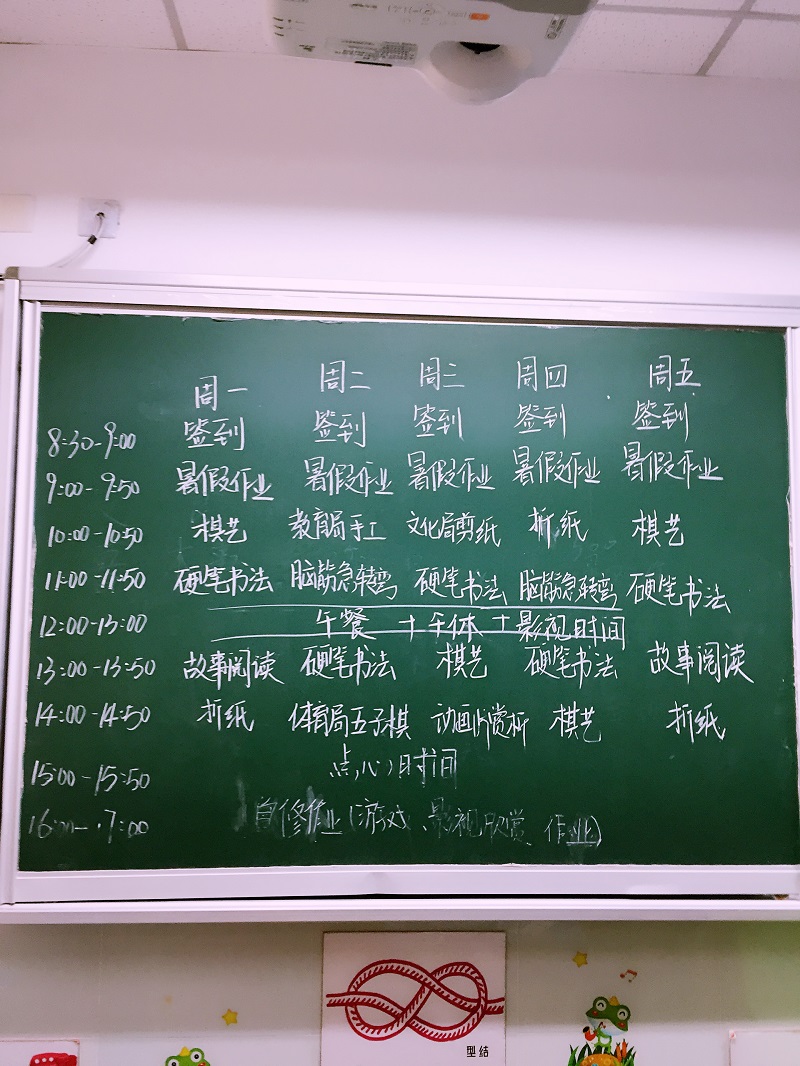 周一 周二 周三 周四 周五
8:30-9:00 签到 签到 签到 签到 签到
9:00-9:50 暑假作业 暑假作业 暑假作业 暑假作业 暑假作业
10:00-10:50 棋艺 教育局手工 文化局剪纸 折纸 棋艺
11:00-11:50 硬笔书法 脑筋急转弯 硬笔书法 脑筋急转弯 硬笔书法
12:00-13:00 午餐+午休+影视时间
13:00-13:50 故事阅读 硬笔书法 棋艺 硬笔书法 故事阅读
14:00-14:50 折纸 体育局五子棋 动画片赏析 棋艺 折纸
15:00-15:50 点心时间
16:00-17:00 自修作业(游戏、影视欣赏、作业)
型结